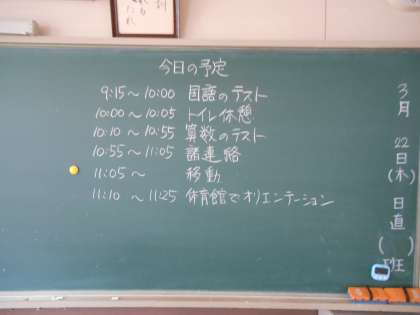 今日の予定
9:15～10:00 国語のテスト
10:00～10:05 トイレ休憩
10:10～10:55 算数のテスト
10:55～11:05 諸連絡
11:05～ 移動
11:10～11:25 体育館でオリエンテーション
3月22日(木)
日直( )班